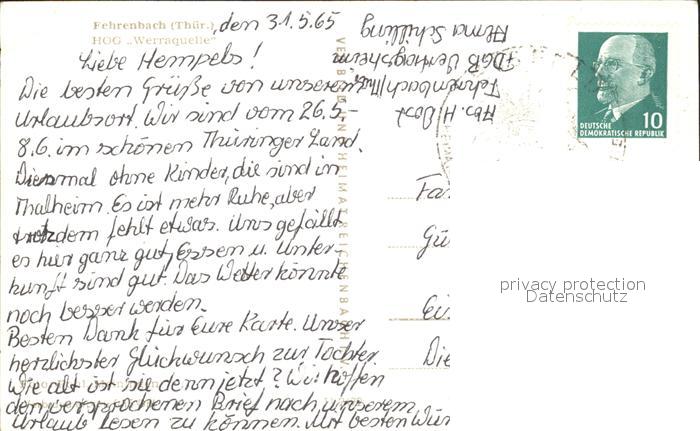 Fehrenbach (Thür.)
HOG „Werraquelle"
, den 31.5.65
Liebe Hempels!
Die besten Grüße von unserem
Urlaubsort. Wir sind vom 26.5.–
8.6. im schönen Thüringer Land.
Diesmal ohne Kinder, die sind in
Thalheim. Es ist mehr Ruhe, aber
trotzdem fehlt etwas. Uns gefällt
es hier ganz gut, Essen u. Unter-
kunft sind gut. Das Wetter könnte
noch besser werden.
Besten Dank für Eure Karte. Unser
herzlichster Glückwunsch zur Tochter.
Wie alt ist sie denn jetzt? Wir hoffen
den versprochenen Brief nach unserem
Urlaub lesen zu können. Mit besten Wün
Abs. H. Dost
Fehrenbach/Thür.
FDGB Vertragsheim
Alma Schilling
REICHENBACH
Fa
Gü
Ein
Die
DEUTSCHE
DEMOKRATISCHE REPUBLIK
10
privacy protection
Datenschutz